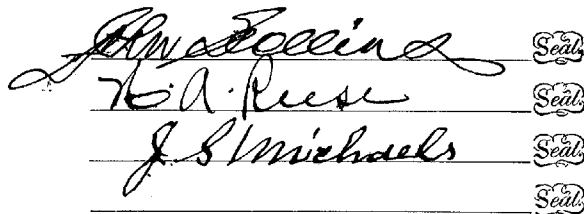 John Scollins Seal.
W. A. Reese Seal.
J. S. Michaels Seal.
Seal.